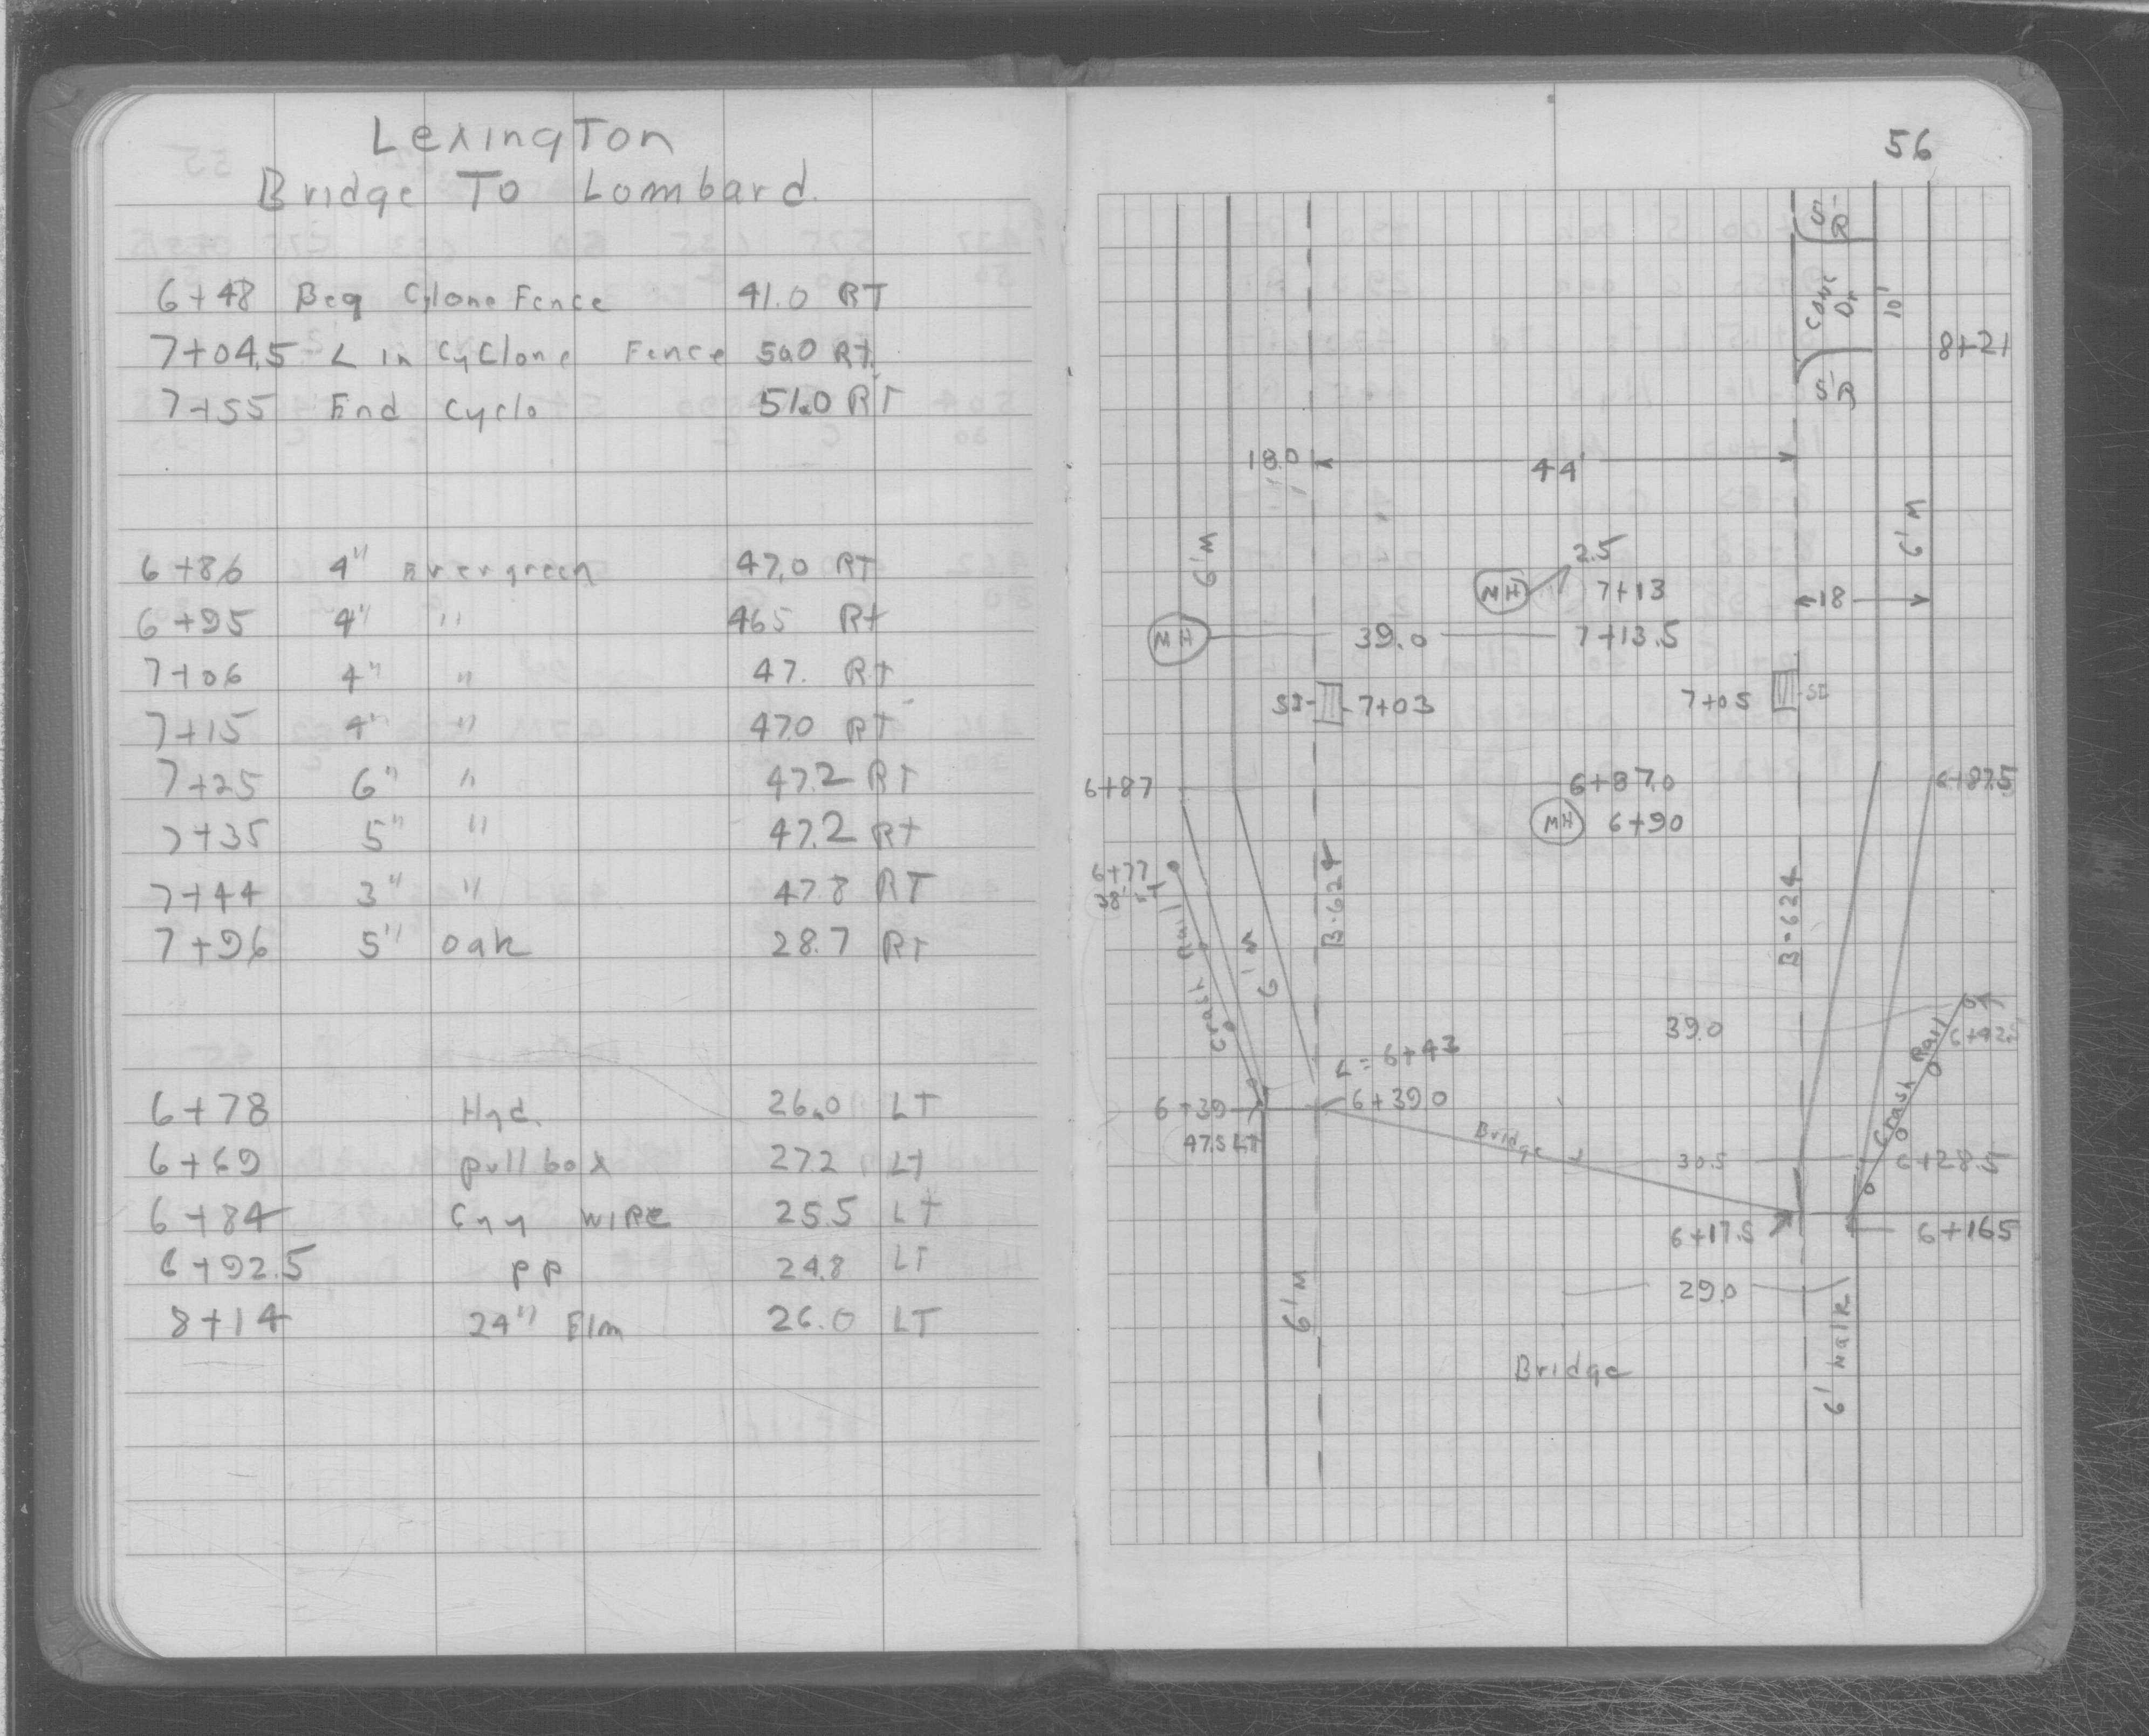 Lexington
Bridge To Lombard.
6+48 Beg Cylone Fence 41.0 RT
7+04.5 L in Cyclone Fence 50.0 Rt.
7+55 End Cyclo 51.0 RT
6+86 4" Evergreen 47.0 RT
6+95 4" " 46.5 Rt
7+06 4" " 47. RT
7+15 4" " 47.0 RT
7+25 6" " 47.2 RT
7+35 5" " 47.2 Rt
7+44 3" " 47.8 RT
7+96 5" oak 28.7 RT
6+78 Hyd. 26.0 LT
6+69 pull box 27.2 LT
6+84 Guy WIRE 25.5 LT
6+92.5 PP 24.8 LT
8+14 24" Elm 26.0 LT
56
5' R
Conc Dr
10'
8+21
5' R
18.0 44'
6' M
6' M
2.5
MH 7+13
18
MH 39.0 7+13.5
SI 7+03
7+05 SI
6+87 6+87.0 6+87.5
MH 6+90
6+77
38' LT
Crash Rail
6' M
B-624
B-624
39.0
6+42.5
Crash Rail
L = 6+43
6+39 6+39.0
47.5 LT
Bridge
30.5 6+28.5
6+17.5 6+16.5
29.0
6' M
6' Walk
Bridge